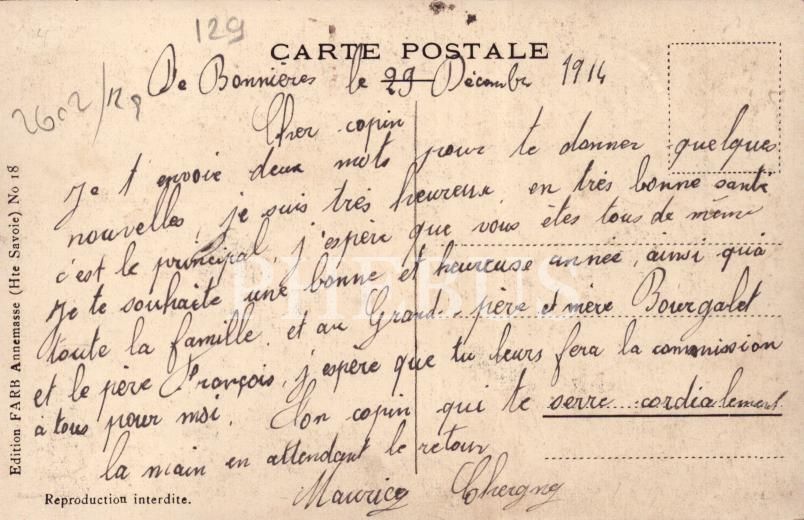 129
CARTE POSTALE
2602/12
De Bonnières le 29 Décembre 1914
Cher copin
Je t envoie deux mots pour te donner quelques
nouvelles, je suis très heureux, en très bonne santé
c'est le principal, j'espère que vous êtes tous de même
Je te souhaite une bonne et heureuse année, ainsi qu'à
toute la famille, et au Grand-père et mère Bourgalet
et le père François, j'espère que tu leurs fera la commission
à tous pour moi. Ton copin qui te serre cordialement
la main en attendant le retour
Maurice
Edition FARB Annemasse (Hte Savoie) No 18
Reproduction interdite.
PHEBUS